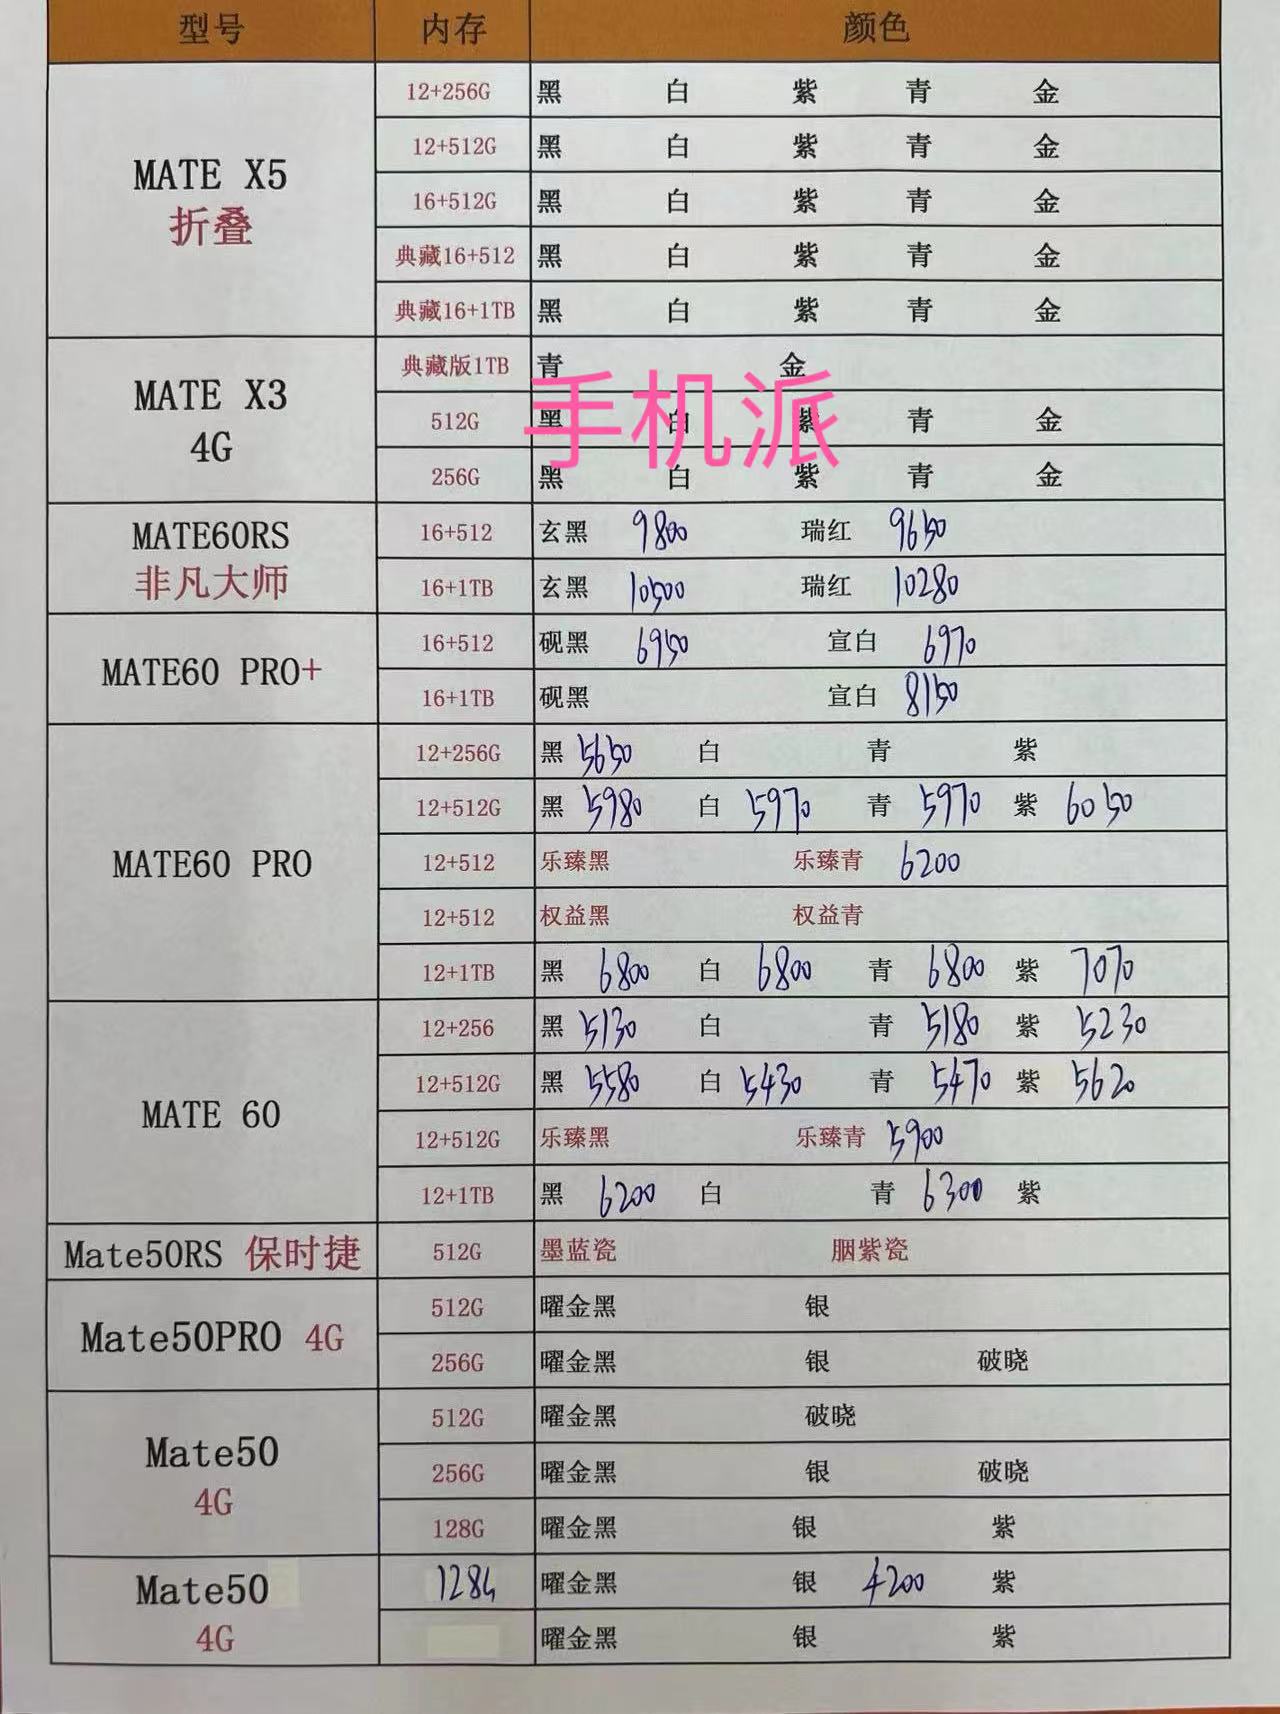 型号 内存 颜色
12+256G 黑 白 紫 青 金
12+512G 黑 白 紫 青 金
MATE X5
折叠
16+512G 黑 白 紫 青 金
典藏16+512 黑 白 紫 青 金
典藏16+1TB 黑 白 紫 青 金
典藏版1TB 青 金
MATE X3
4G
512G 黑 白 紫 青 金
手机派
256G 黑 白 紫 青 金
MATE60RS
非凡大师
16+512 玄黑 9800 瑞红 9650
16+1TB 玄黑 10500 瑞红 10280
MATE60 PRO+
16+512 砚黑 6950 宣白 6970
16+1TB 砚黑 宣白 8150
12+256G 黑 5650 白 青 紫
12+512G 黑 5980 白 5970 青 5970 紫 6050
MATE60 PRO
12+512 乐臻黑 乐臻青 6200
12+512 权益黑 权益青
12+1TB 黑 6800 白 6800 青 6800 紫 7070
12+256 黑 5130 白 青 5180 紫 5230
12+512G 黑 5580 白 5430 青 5470 紫 5620
MATE 60
12+512G 乐臻黑 乐臻青 5900
12+1TB 黑 6200 白 青 6300 紫
Mate50RS 保时捷 512G 墨蓝瓷 胭紫瓷
Mate50PRO 4G
512G 曜金黑 银
256G 曜金黑 银 破晓
Mate50
4G
512G 曜金黑 破晓
256G 曜金黑 银 破晓
128G 曜金黑 银 紫
Mate50
4G
128G 曜金黑 银 4200 紫
曜金黑 银 紫